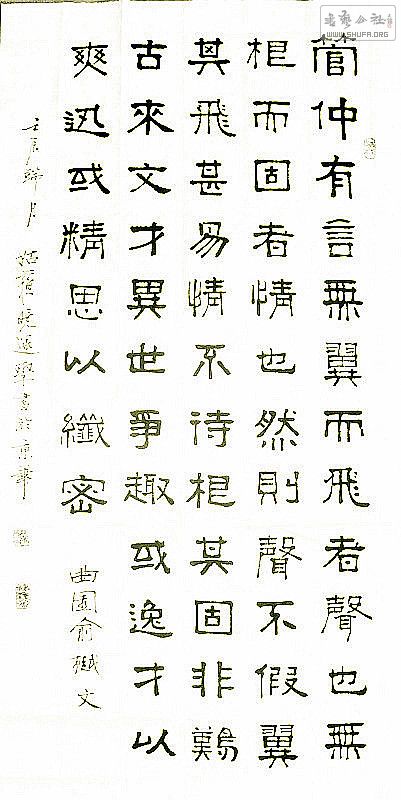 管仲有言無翼而飛者聲也無
根而固者情也然則聲不假翼
其飛甚易情不待根其固非難
古來文才異世爭趣或逸才以
爽迅或精思以纖密 曲園俞樾文
壬辰 月 書於京華
書藝公社
WWW.SHUFA.ORG